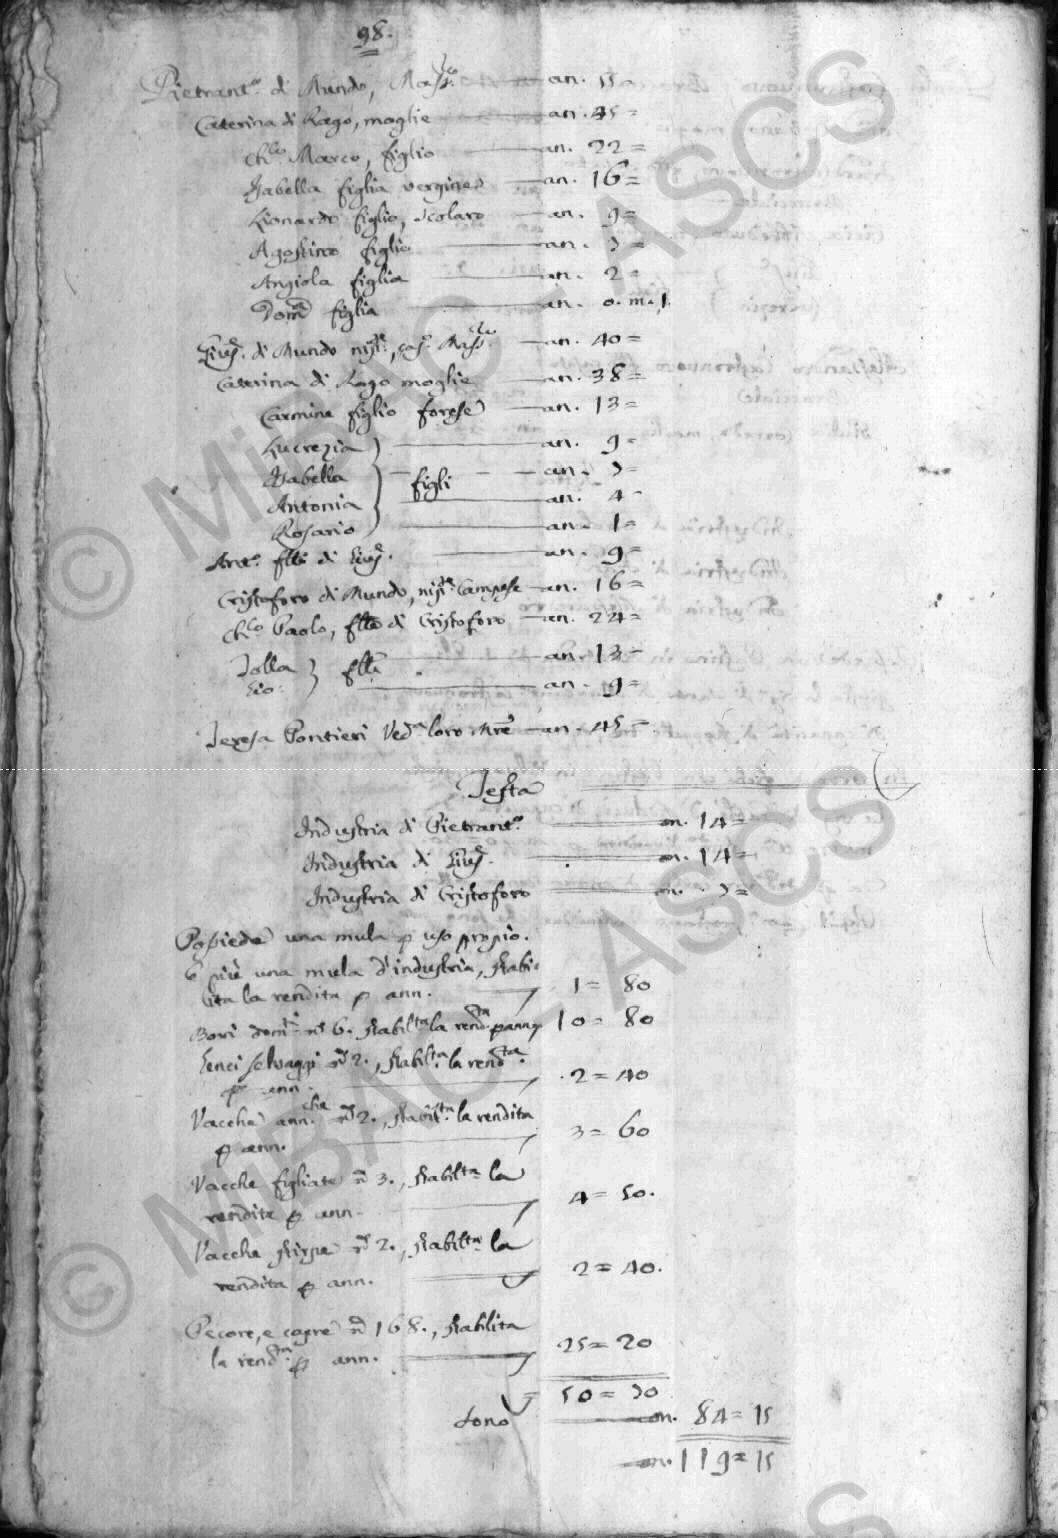 98.
Pietrant.º di Mundo, Mass.ro an. 55
Caterina di Rago, moglie an. 45 =
Ch.co Marco, figlio an. 22 =
Isabella figlia vergine an. 16 =
Lionardo figlio, scolaro an. 9 =
Agostino figlio an. 5 =
Angiola figlia an. 2 =
Dom.ca figlia an. 0. m. 1.
di Mundo an. 40 =
Caterina di Rago moglie an. 38 =
Carmine figlio forese an. 13 =
Lucrezia an. 9 =
Isabella figli an. 5 =
Antonia an. 4 =
Rosario an. 1 =
Ant.º fllo di an. 9 =
Cristoforo di Mundo, an. 16 =
Ch.co Paolo, fllo di Cristoforo an. 24 =
an. 13 =
Gio: flli an. 9 =
Teresa Pontieri Ved.a loro Mre an. 45 =
Testa
Industria di Pietrant.º on. 14 =
Industria di on. 14 =
Industria di Cristoforo on. 7 =
Possiede una mula p uso proprio.
E più una mula d'industria, stabi-
lita la rendita p ann. 1 = 80
Bovi dom.ti nº 6. stabil.ta la rend.ta p ann. 10 = 80
Jenci selvaggi nº 2., stabil.ta la rend.ta
p ann. 2 = 40
Vacche ann.che nº 2., stabil.ta la rendita
p ann. 3 = 60
Vacche figliate nº 3., stabil.ta la
rendita p ann. 4 = 50.
Vacche stirpe nº 2., stabil.ta la
rendita p ann. 2 = 40.
Pecore, e capre nº 168., stabilita
la rend.ta p ann. 25 = 20
50 = 70
sono on. 84 = 15
on. 119 = 15
© MiBAC - ASCS
© MiBAC - ASCS